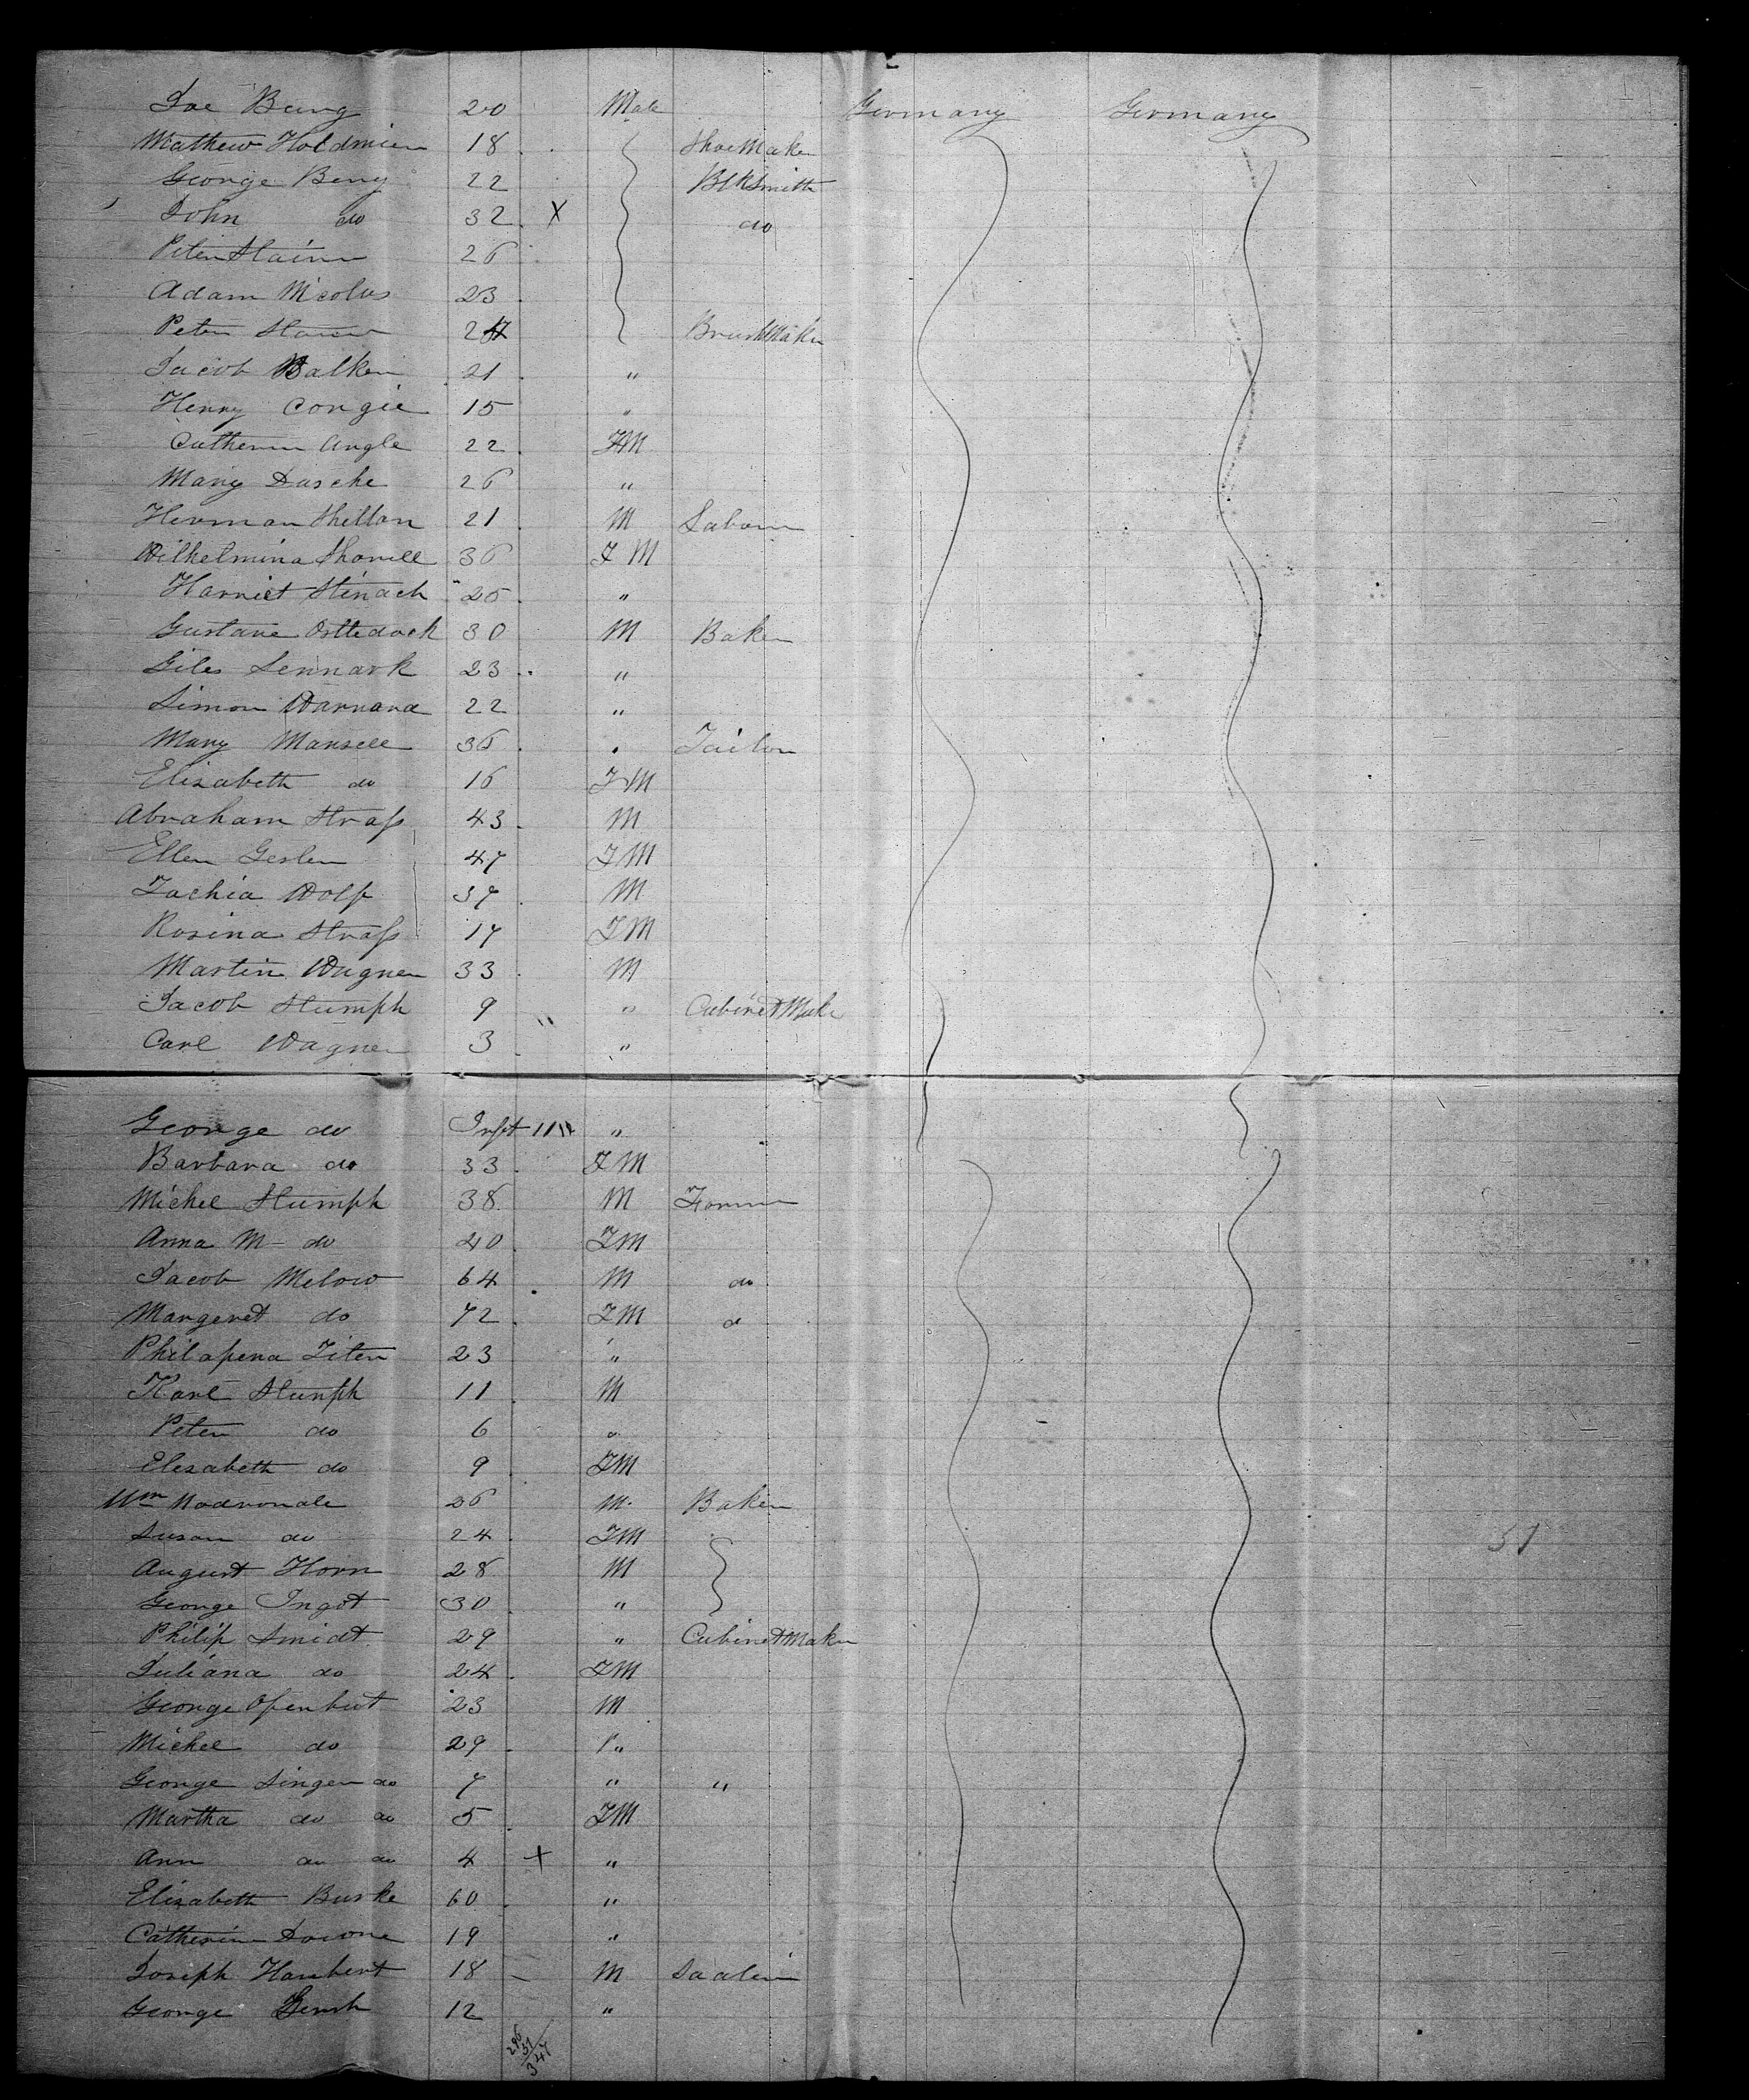 Joe Barry 20 Male Germany Germany
Mathew Holdmien 18 ShoeMaker
George Berry 22 BlkSmith
John do 32 X do
Peter Stainn 26
Adam Nicolas 23
Peter 24 BrushMaker
Jacob Balken 21 "
Henry Congie 15 "
Catherin Angle 22 FM
Mary Dasche 26 "
Herman Shellan 21 M Laborer
Wilhelmina Shonell 36 FM
Harriet Stinach 25 "
Gustave Osttedock 30 M Baker
Giles Lennark 23 "
Simon Warnard 22 "
Mary Mansell 36 " Tailor
Elizabeth do 16 FM
Abraham Strass 43 M
Ellen Gesler 47 FM
Zachia Wolf 37 M
Rosina Strass 17 FM
Martin Wagner 33 M
Jacob Stumph 9 " CabinetMaker
Carl Wagner 3 "
George do Inft 11 "
Barbara do 33 FM
Michel Stumph 38 M Farmer
Anna M do 40 FM
Jacob Melow 64 M do
Margeret do 72 FM d
Philapena Ziten 23 "
Karl Stumph 11 M
Peter do 6 "
Elezabeth do 9 FM
Wm Nodvonale 26 M Baker
Susan do 24 FM
August Horn 28 M
George Ingot 30 "
Philip Smidt 29 " CabinetMaker
Juliana do 24 FM
George Openheet 23 M
Michel do 29 "
George Singer do 7 " "
Martha do do 5 FM
Ann do do 4 X "
Elizabeth Burke 60 "
Catherin 19 "
Joseph Haubert 18 M Saaler
George 12 "
51
296
51
347